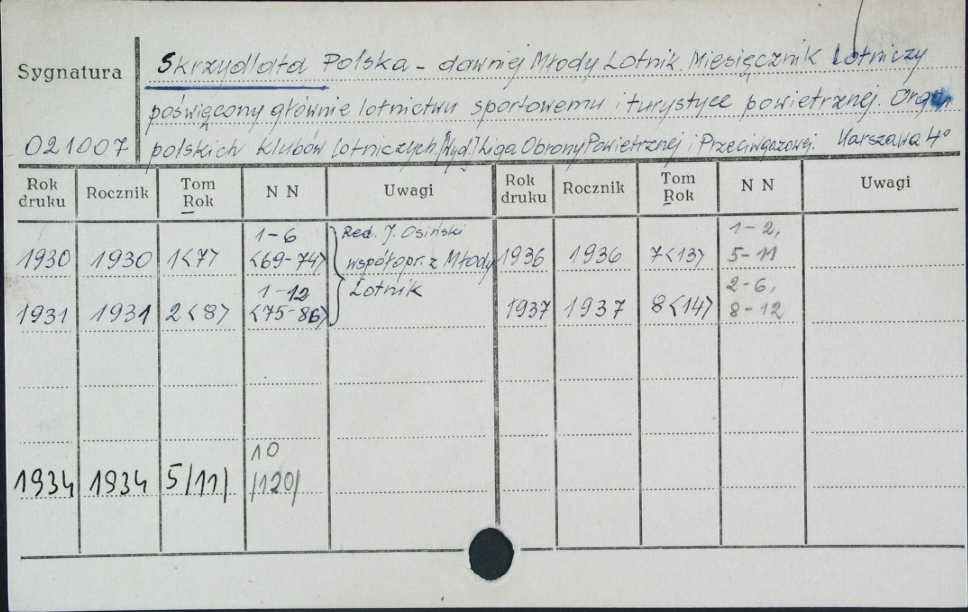 Sygnatura
021007
Skrzydlata Polska - dawniej Młody Lotnik. Miesięcznik Lotniczy
poświęcony głównie lotnictwu sportowemu i turystyce powietrznej. Organ
polskich Klubów Lotniczych [Wyd.] Liga Obrony Powietrznej i Przeciwgazowej. Warszawa 4°
Rok druku Rocznik Tom Rok N N Uwagi Rok druku Rocznik Tom Rok N N Uwagi
1930 1930 1<7> 1-6 <69-74> Red. J. Osiński współopr. z Młody Lotnik 1936 1936 7<13> 1-2, 5-11
1931 1931 2<8> 1-12 <75-86> 1937 1937 8<14> 2-6, 8-12
1934 1934 5/11/ 10 /120/